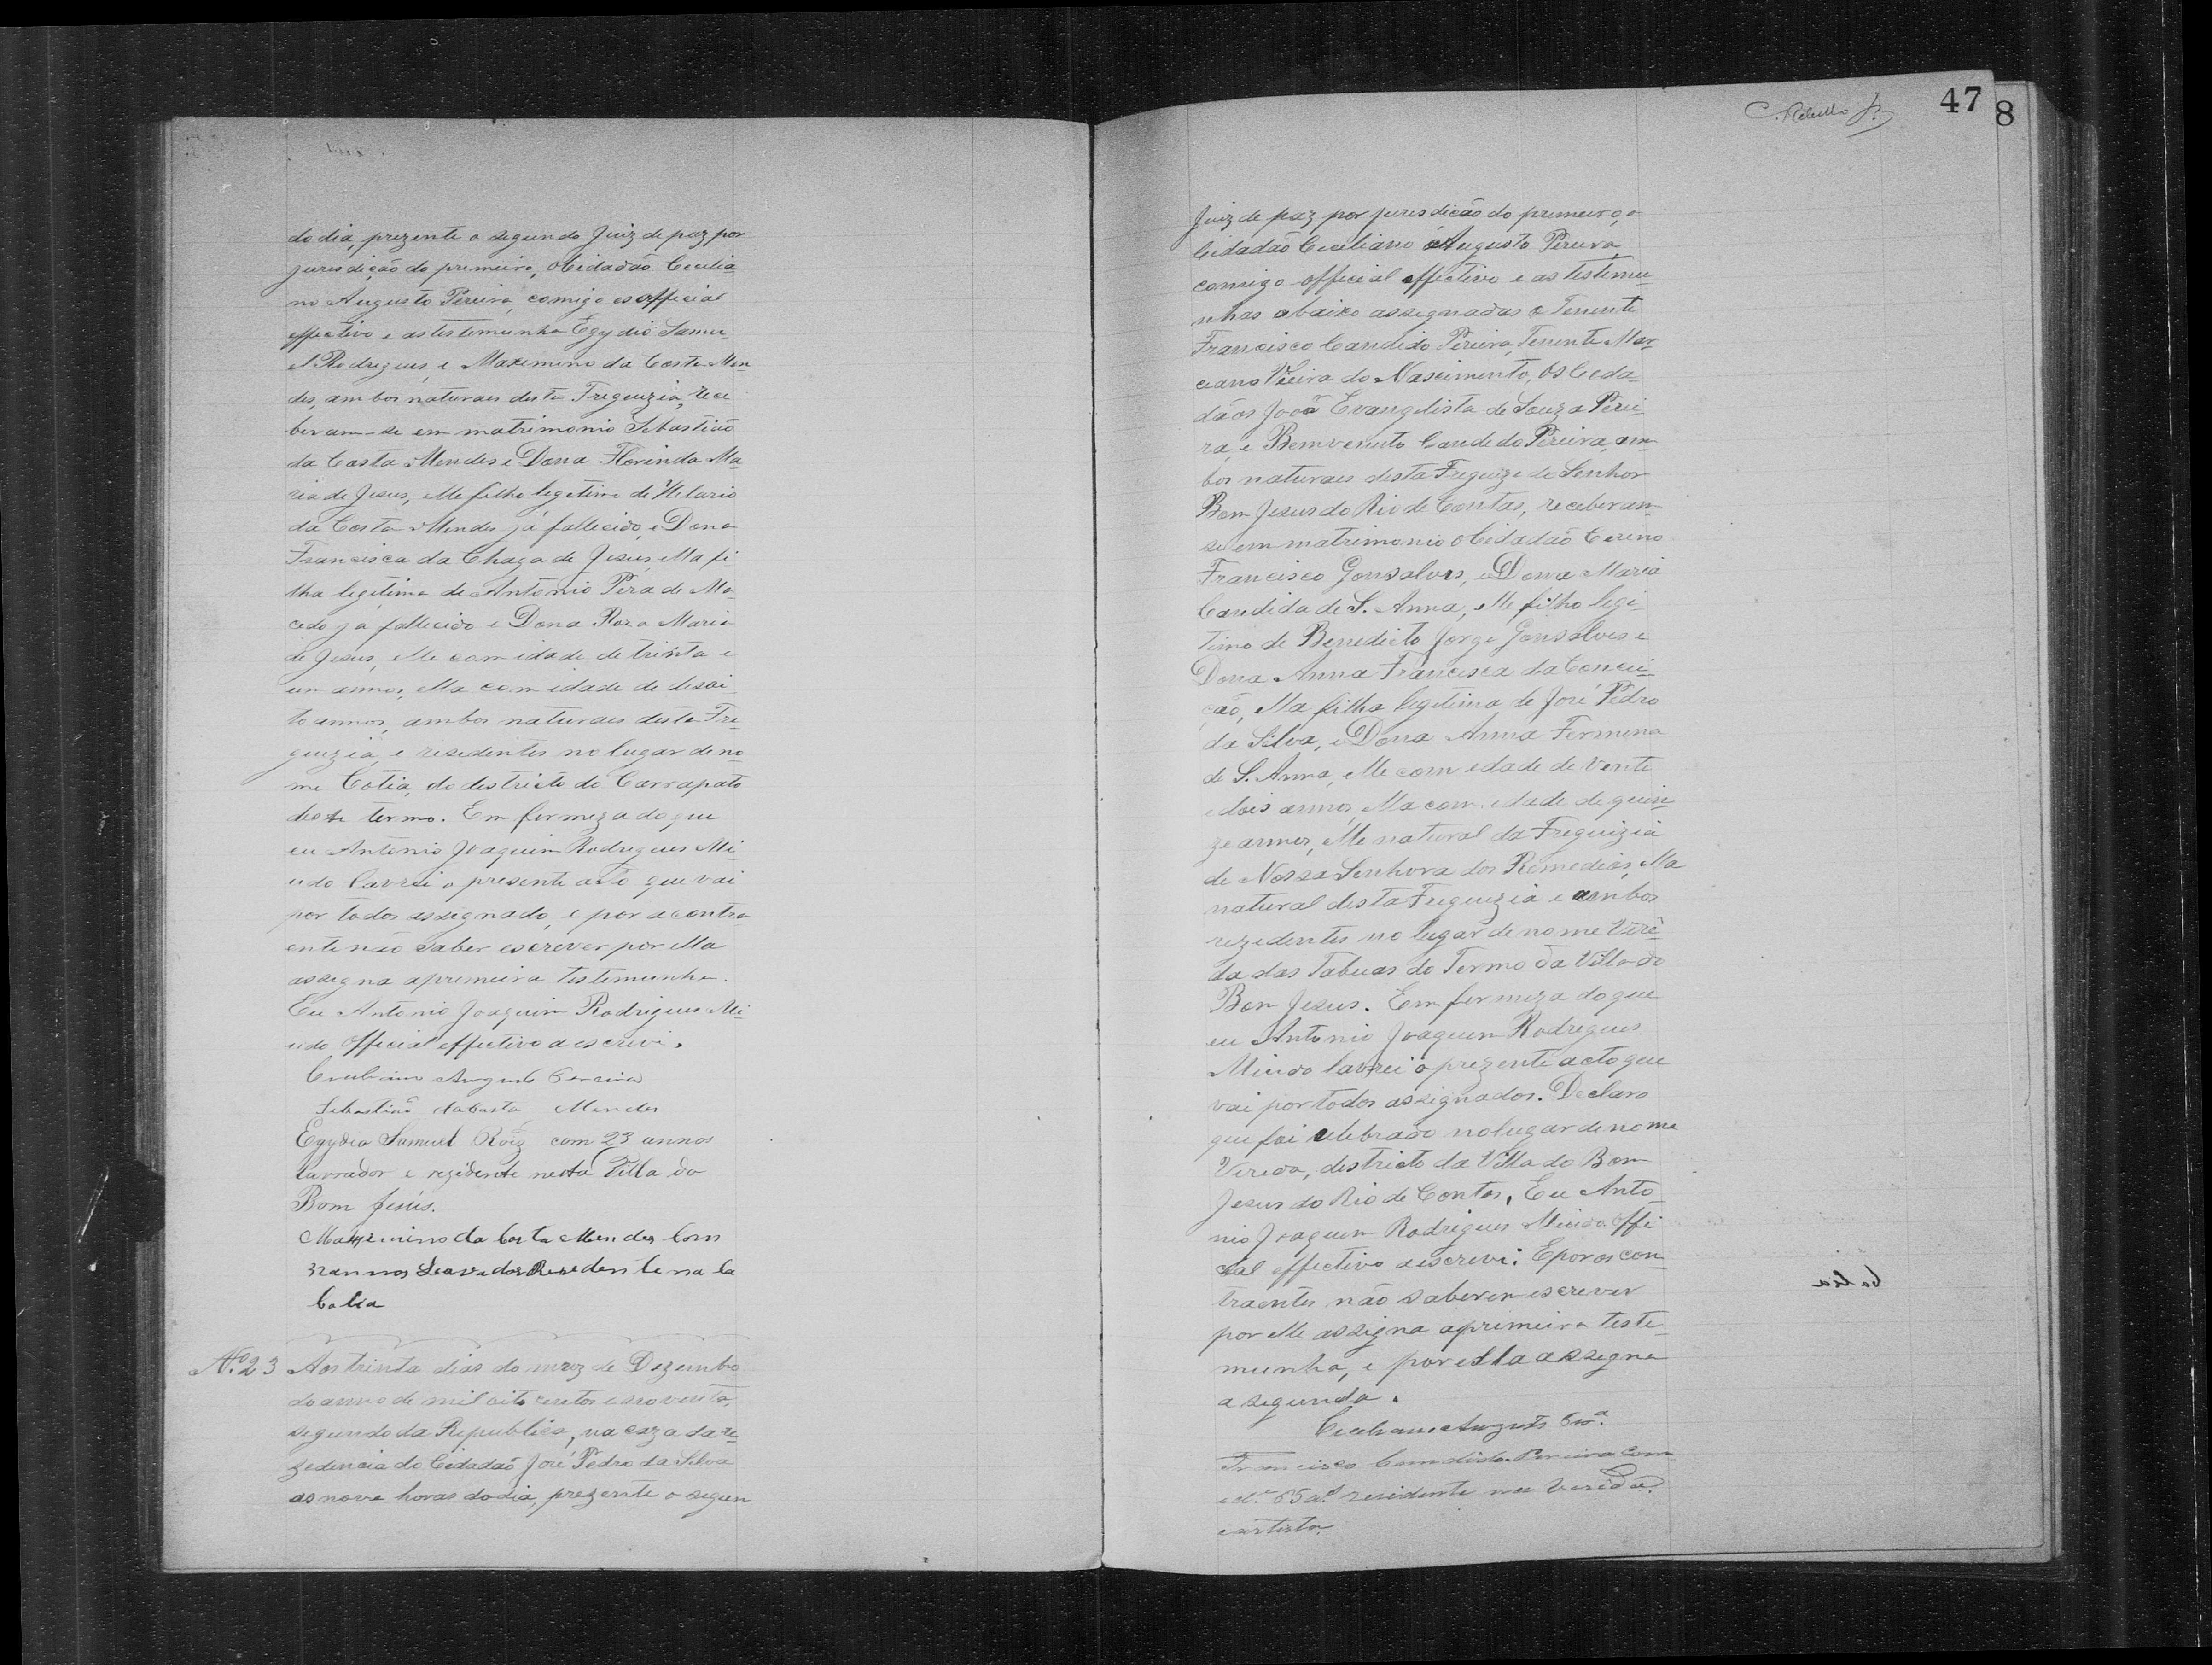 do dia, prezente o segundo Juiz de paz por
jurisdição do primeiro, o Cidadão Cicilia
no Augusto Pereira, comigo os official
effectivo e as testemunha Egydio Samu-
el Rodrigues, e Maximino da Costa Men
des, ambos naturaes desta Freguizia, rece
beram-se em matrimonio Sebastião
da Costa Mendes e Dona Florinda Ma
ria de Jesus, elle filho legitimo de Helario
da Costa Mendes já fallecido, e Dona
Francisca da Chaga de Jesus, ella fi
lha legitima de Antonio Pera de Ma-
cedo já fallecido e Dona Roza Maria
de Jesus, elle com idade de trinta e
um annos, ella com idade de desoi
to annos, ambos naturaes desta Fre
guizia, e residentes no lugar de no
me Cotia, do destricto do Carrapato
deste termo. Em firmeza do que
eu Antonio Joaquim Rodrigues Mi-
udo lavrei o presente acto que vai
por todos assignado, e por a contra
ente não saber escrever por ella
assigna a primeira testemunha.
Eu Antonio Joaquim Rodrigues Mi-
udo Official effectivo a escrevi.
Ceciliano Augusto Pereira
Sebastião da Costa Mendes
Egydio Samuel Roiz com 23 annos
lavrador e rezidente nesta Villa do
Bom Jesús.
Maximino da Costa Mendes Com
32 annos Lavrador Residente na ca
Cotia
N.º 23 Aos trinta dias do mez de Dezembro
do anno de mil oito centos e noventa,
segundo da Republica, na caza da re-
zedencia do Cidadão José Pedro da Silva
as nove horas do dia, prezente o segun
C. Rebello Jr.
47
8
Juiz de paz por jurisdicão do primeiro, o
Cidadão Ceciliano Augusto Pereira
comigo official effectivo e as testemu-
nhas abaixo assegnadas o Tenente
Francisco Candido Pereira, Tenente Mar
ciano Vieira do Nascimento, os Ceda-
dãos João Evangelista de Souza Perei-
ra, e Bemvenuto Candedo Pereira, am-
bos naturaes desta Freguize do Senhor
Bom Jesus do Rio de Contas, receberam
se em matrimonio o Cidadão Cerino
Francisco Gonsalves, e Dona Maria
Candida de S. Anna, elle filho legi-
timo de Benedicto Jorge Gonsalves e
Dona Anna Francisca da Concei-
ção, ella filha legitima de José Pedro
da Silva, e Dona Anna Fermina
de S. Anna, elle com edade de vente
e dois annos, ella com edade de quin-
ze annos, elle natural da Freguizia
de Nossa Senhora dos Remedios, ella
natural desta Freguizia e ambos
rezedentes no lugar de nome Verê-
da das Tabuas do Termo da Villa do
Bom Jesus. Em firmeza do que
eu Antonio Joaquim Rodrigues
Miudo lavrei o prezente acto que
vai por todos assignados. Declaro
que foi celebrado no lugar de nome
Vereda, destricto da Villa do Bom
Jesus do Rio de Contas, Eu Anto-
nio Joaquim Rodrigues Miudo Offi
cial effectivo a escrevi. E por os con-
traentes não saberem escrever
por elle assigna a primeira teste-
munha, e por ella assegna
a segunda.
Ceciliano Augusto Per.ª
Francisco Candido Pereira com
ed.e 65 a.s residente na Vereda.
e artista.
Cotia